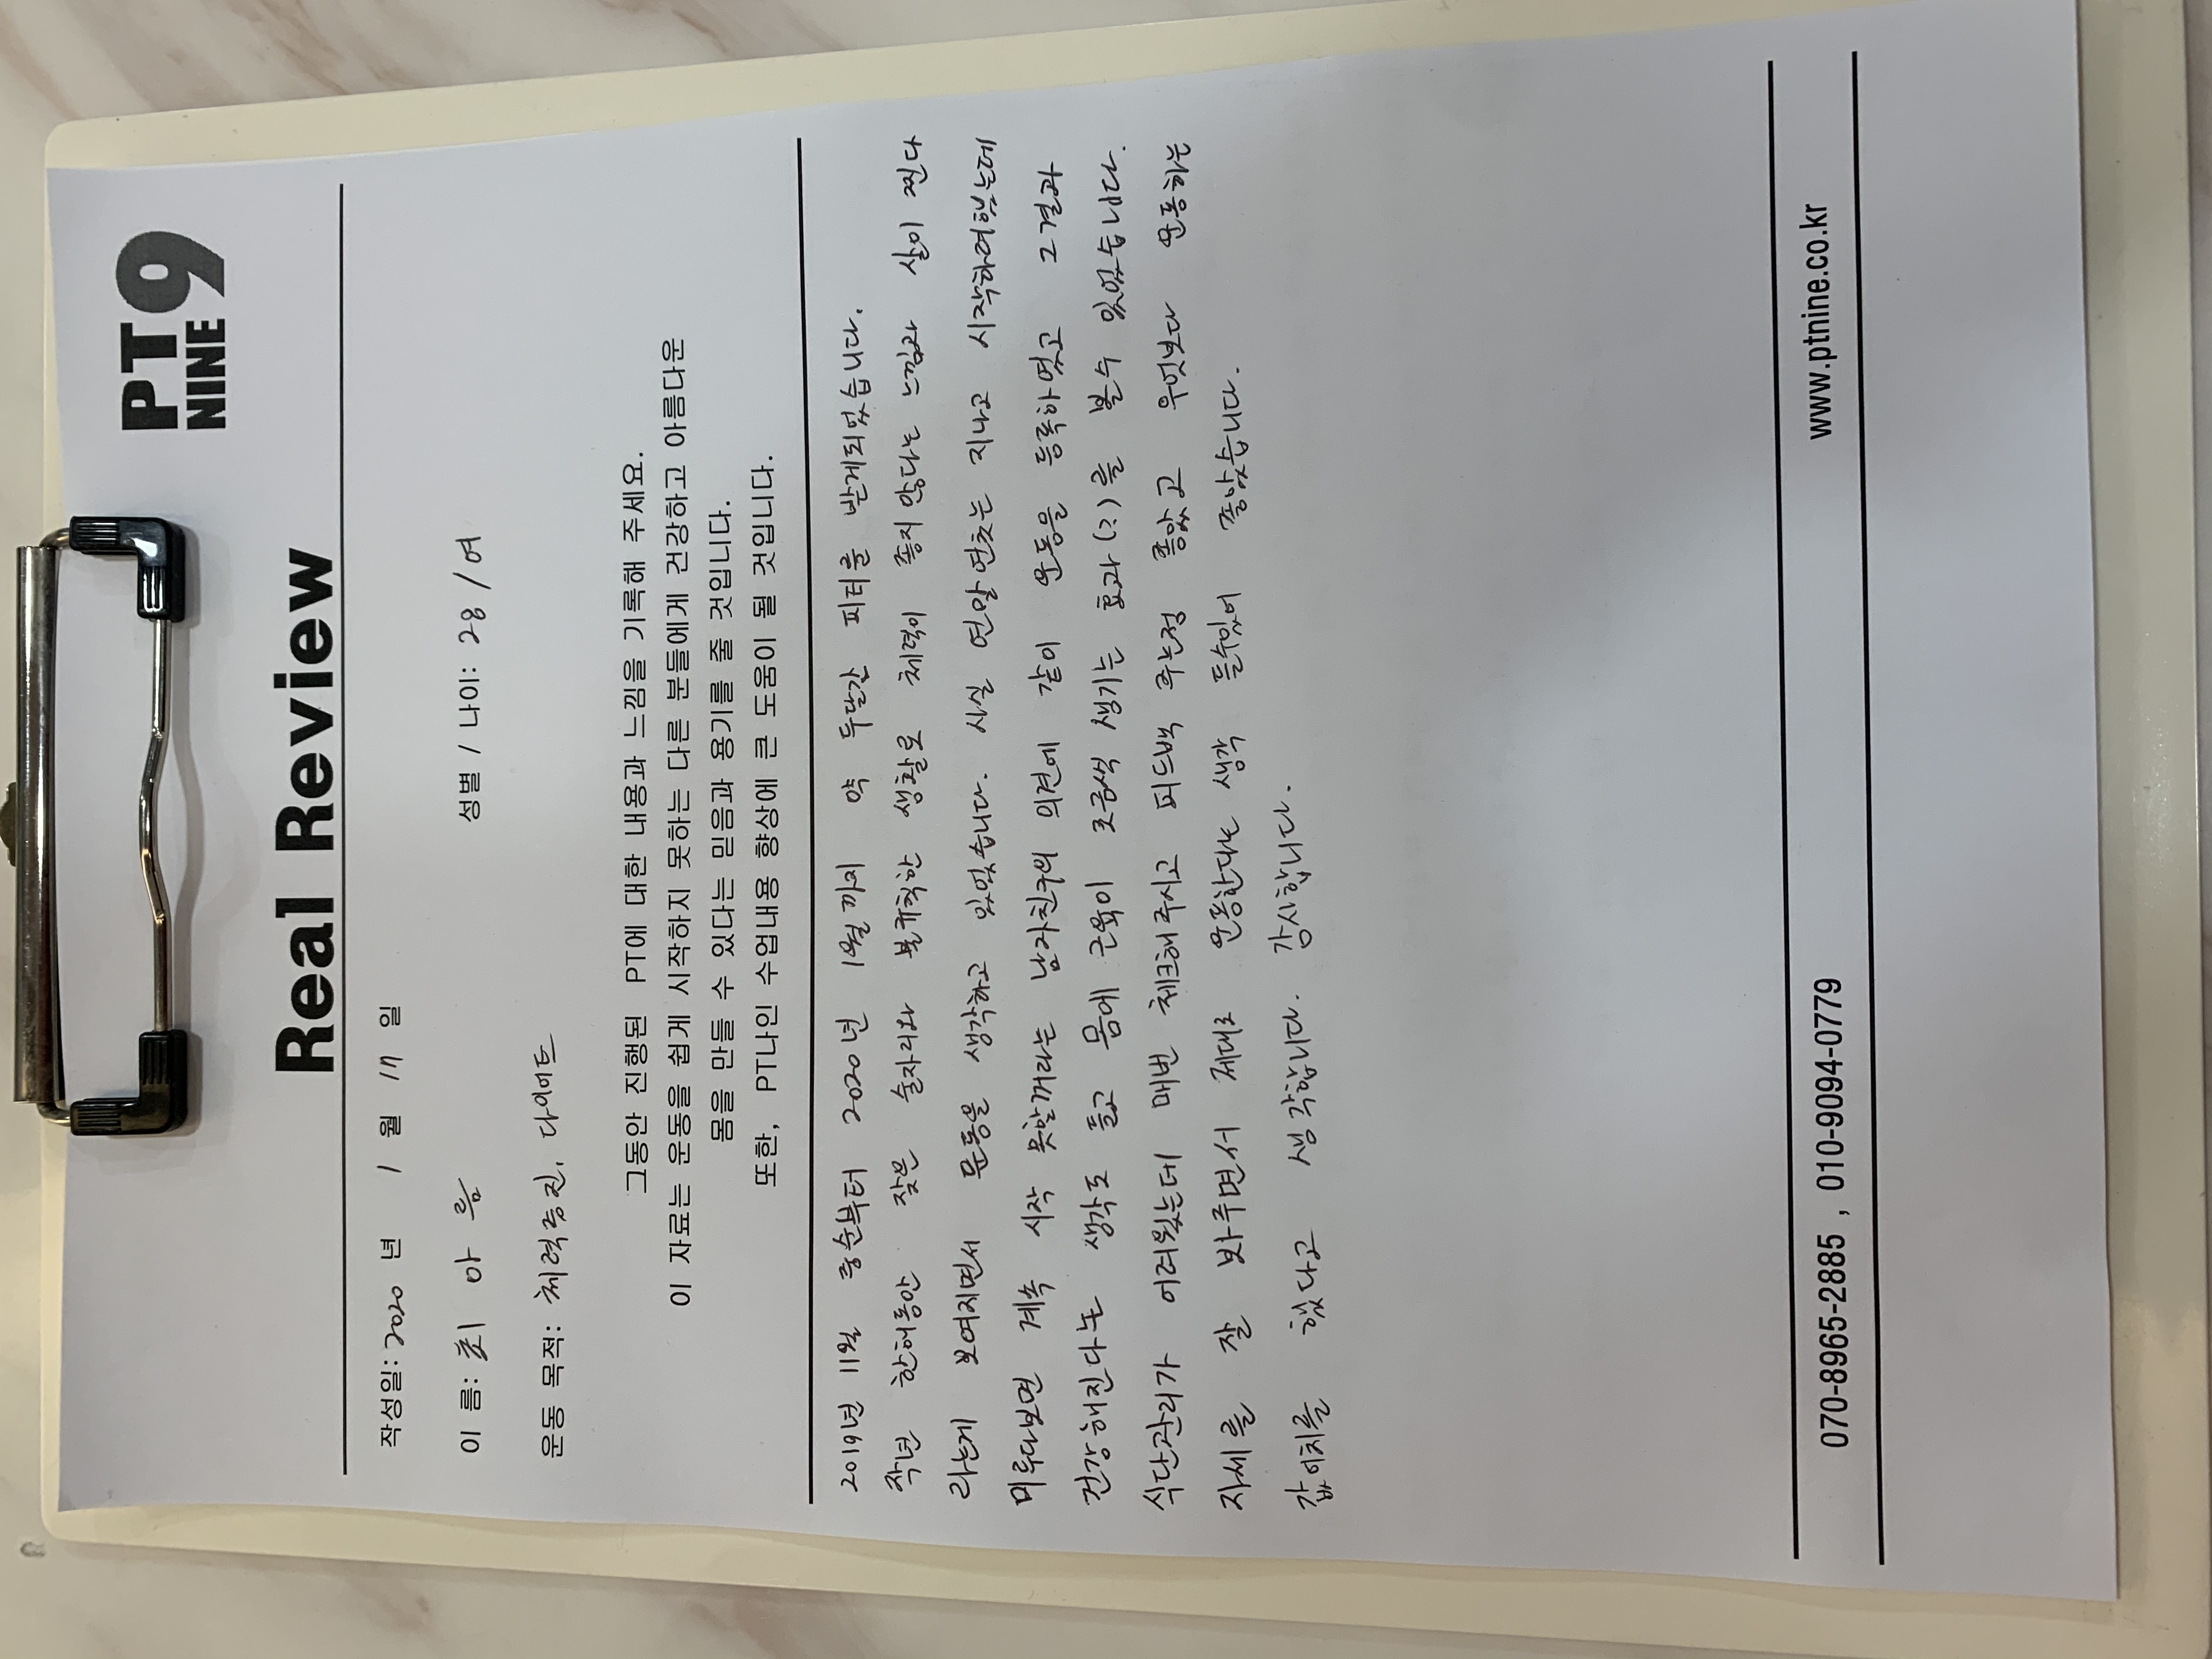 PT
NINE 9
Real Review
작성일: 2020 년 1 월 17 일
이 름: 최 아 름 성별 / 나이: 28 / 여
운동 목적: 체력증진, 다이어트
그동안 진행된 PT에 대한 내용과 느낌을 기록해 주세요.
이 자료는 운동을 쉽게 시작하지 못하는 다른 분들에게 건강하고 아름다운
몸을 만들 수 있다는 믿음과 용기를 줄 것입니다.
또한, PT나인 수업내용 향상에 큰 도움이 될 것입니다.
2019년 11월 중순부터 2020년 1월까지 약 두달간 피티를 받게되었습니다.
작년 한해동안 잦은 술자리와 불규칙한 생활로 체력이 좋지 않다는 느낌과 살이 찐다
라는게 보여지면서 운동을 생각하고 있었습니다. 사실 연말연초는 지나고 시작하려했는데
미루다보면 계속 시작 못할꺼라는 남자친구의 의견에 같이 운동을 등록하였고 그결과
건강해진다는 생각도 들고 몸에 근육이 조금씩 생기는 효과(?)를 볼수 있었습니다.
식단관리가 어려웠는데 매번 체크해주시고 피드백 주는점 좋았고 무엇보다 운동하는
자세를 잘 봐주면서 제대로 운동한다는 생각 들수있어 좋았습니다.
값어치를 했다고 생각합니다. 감사합니다.
070-8965-2885 , 010-9094-0779 www.ptnine.co.kr